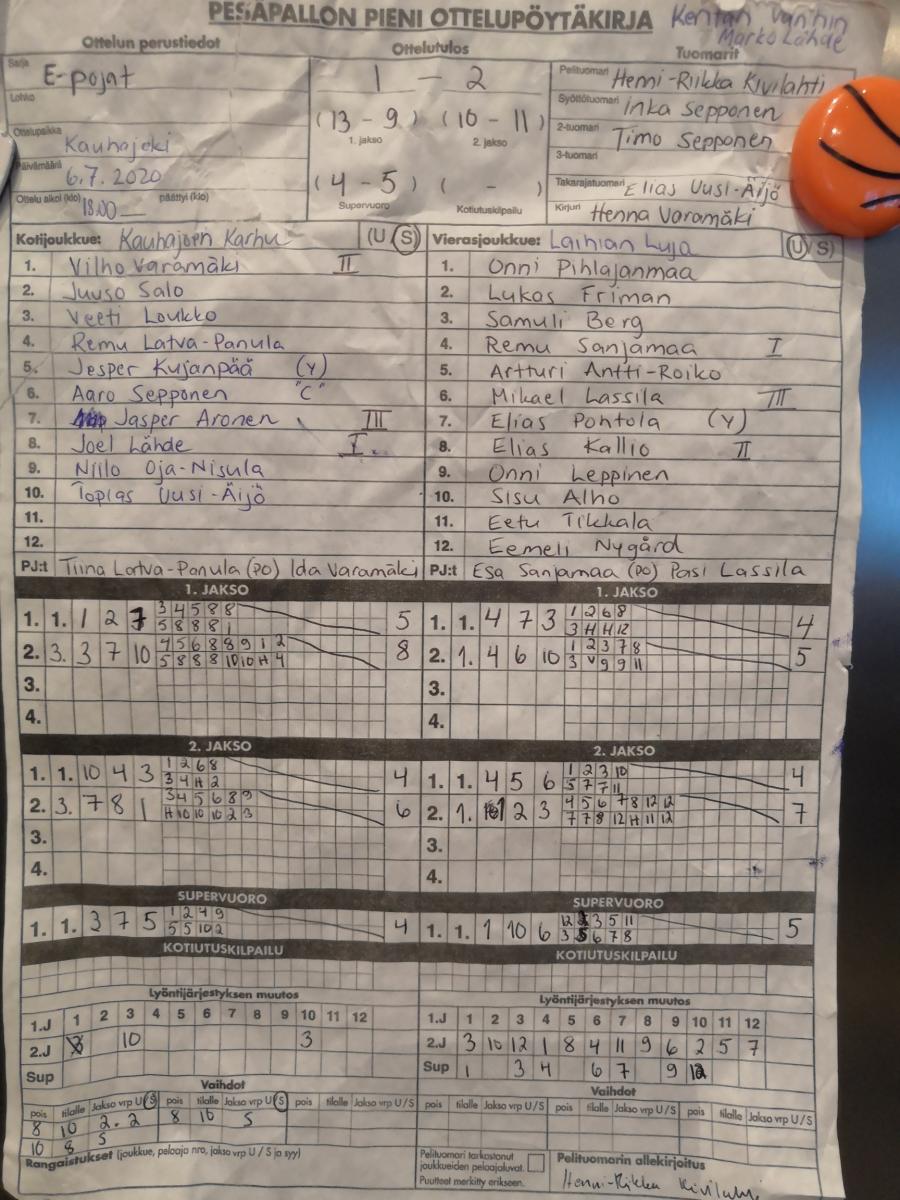 PESÄPALLON PIENI OTTELUPÖYTÄKIRJA
Kentän vanhin
Marko Lähde
Ottelun perustiedot
Ottelutulos
Tuomarit
Sarja E-pojat
Lohko
Ottelupaikka Kauhajoki
Päivämäärä 6.7.2020
Ottelu alkoi (klo) 18.00 päättyi (klo)
1 - 2
(13 - 9) (10 - 11)
1. jakso 2. jakso
(4 - 5) ( - )
Supervuoro Kotiutuskilpailu
Pelituomari Henni-Riikka Kivilahti
Syöttötuomari Inka Sepponen
2-tuomari Timo Sepponen
3-tuomari
Takarajatuomari Elias Uusi-Äijö
Kirjuri Henna Varamäki
Kotijoukkue: Kauhajoen Karhu (U S)
1. Vilho Varamäki II
2. Juuso Salo
3. Veeti Loukko
4. Remu Latva-Panula
5. Jesper Kujanpää (Y)
6. Aaro Sepponen "C"
7. Jasper Aronen III
8. Joel Lähde I
9. Niilo Oja-Nisula
10. Topias Uusi-Äijö
11.
12.
PJ:t Tiina Latva-Panula (PO) Ida Varamäki
Vierasjoukkue: Laihian Luja (U/S)
1. Onni Pihlajanmaa
2. Lukas Friman
3. Samuli Berg
4. Remu Sanjamaa I
5. Artturi Antti-Roiko
6. Mikael Lassila III
7. Elias Pohtola (Y)
8. Elias Kallio II
9. Onni Leppinen
10. Sisu Alho
11. Eetu Tikkala
12. Eemeli Nygård
PJ:t Esa Sanjamaa (PO) Pasi Lassila
1. JAKSO
1. 1. 1 2 7 3 4 5 8 8 5
5 8 8 8 1
2. 3. 3 7 10 4 5 6 8 8 9 1 2 8
5 8 8 8 10 10 H 4
3.
4.
1. JAKSO
1. 1. 4 7 3 1 2 6 8 4
3 H H 12
2. 1. 4 6 10 1 2 3 7 8 5
3 V 9 9 11
3.
4.
2. JAKSO
1. 1. 10 4 3 1 2 6 8 4
3 4 H 2
2. 3. 7 8 1 3 4 5 6 8 9 6
H 10 10 10 2 3
3.
4.
2. JAKSO
1. 1. 4 5 6 1 2 3 10 4
5 7 7 11
2. 1. 1 2 3 4 5 6 7 8 12 12 7
7 7 8 12 H 11 12
3.
4.
SUPERVUORO
1. 1. 3 7 5 1 2 4 9 4
5 5 10 2
SUPERVUORO
1. 1. 1 10 6 12 3 5 11 5
3 5 6 7 8
KOTIUTUSKILPAILU
KOTIUTUSKILPAILU
Lyöntijärjestyksen muutos
1.J 1 2 3 4 5 6 7 8 9 10 11 12
2.J 10 3
Sup
Lyöntijärjestyksen muutos
1.J 1 2 3 4 5 6 7 8 9 10 11 12
2.J 3 10 12 1 8 4 11 9 6 2 5 7
Sup 1 3 4 6 7 9 12
Vaihdot
pois tilalle Jakso vrp U/S pois tilalle Jakso vrp U/S pois tilalle Jakso vrp U/S
8 10 2. 2 8 10 S
10 8 S
Vaihdot
pois tilalle Jakso vrp U/S pois tilalle Jakso vrp U/S pois tilalle Jakso vrp U/S
Rangaistukset (joukkue, pelaaja nro, jakso vrp U / S ja syy)
Pelituomari tarkastanut
joukkueiden pelaajaluvat.
Puutteet merkitty erikseen.
Pelituomarin allekirjoitus
Henni-Riikka Kivilahti